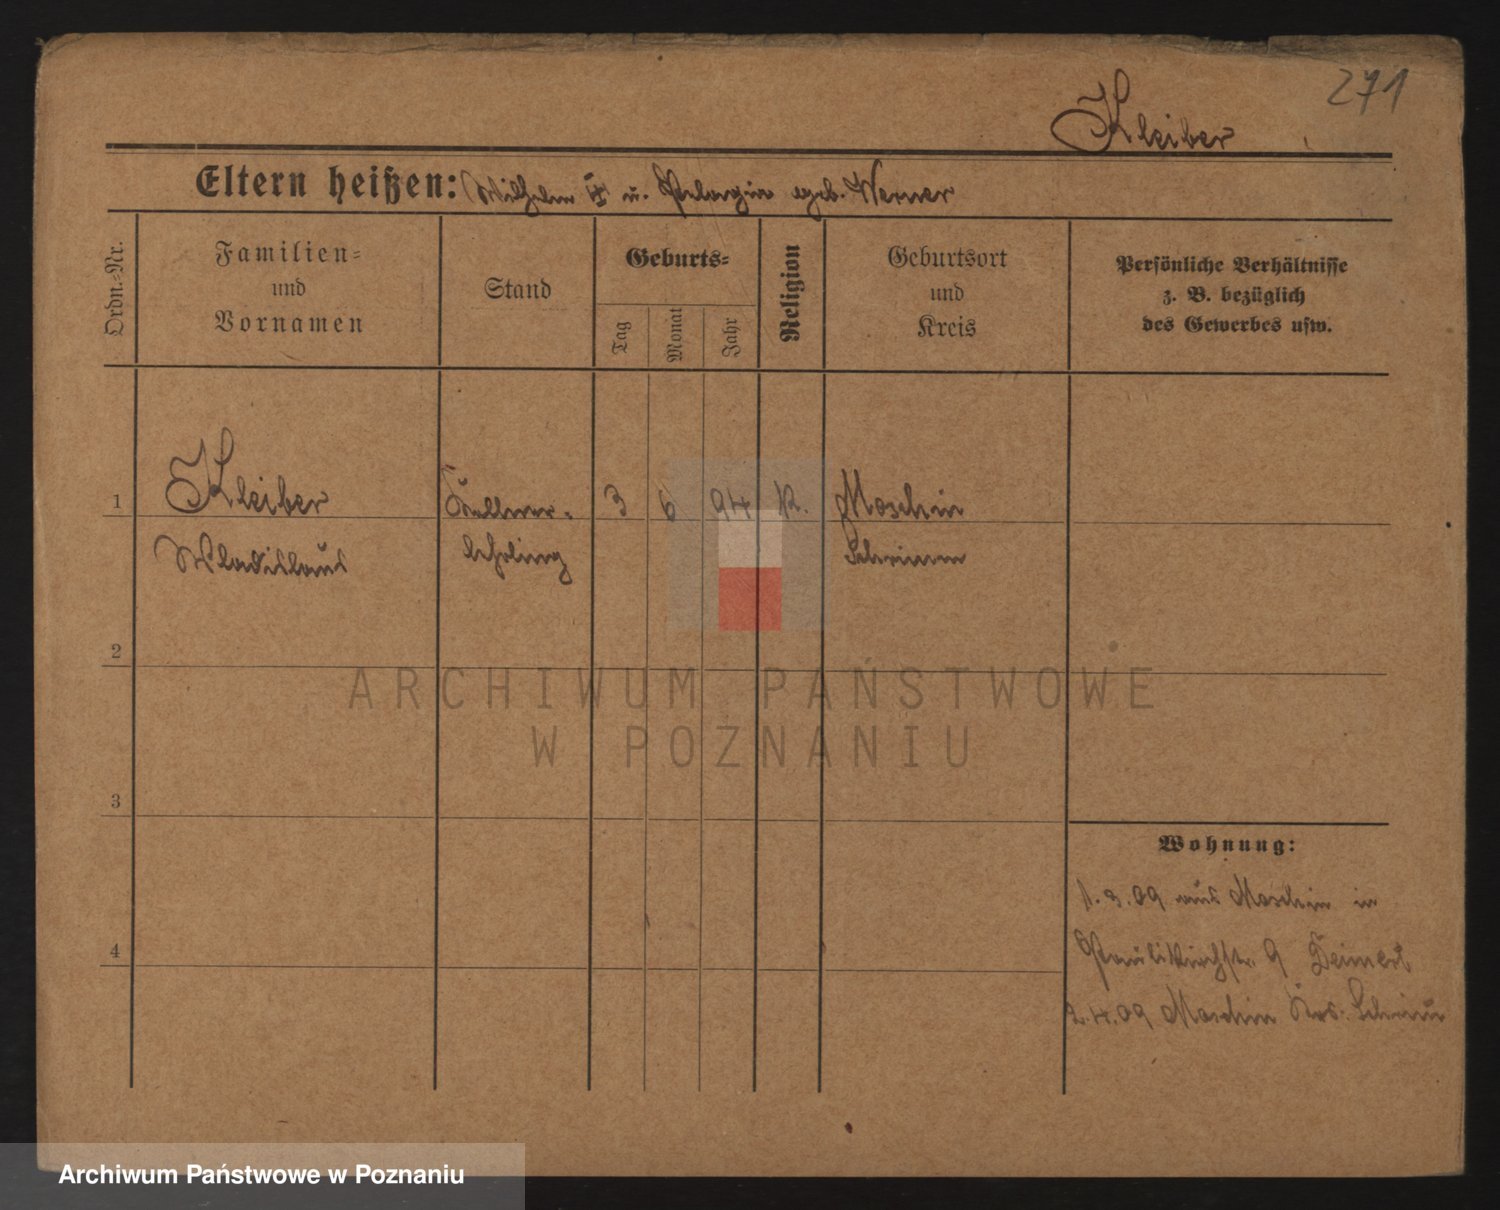 271
Kleiber
Eltern heißen: Wilhelm u. Pelagia geb. Werner
Ordn.-Nr.
Familien-
und
Vornamen
Stand
Geburts-
Tag
Monat
Jahr
Religion
Geburtsort
und
Kreis
Persönliche Verhältnisse
z. B. bezüglich
des Gewerbes usw.
1
Kleiber
Wladislaus
Kellner-
lehrling
3
6
94
K.
Moschin
Schrimm
2
3
4
Wohnung:
1.3.09 aus Moschin in
Paulikirchstr. 9
2.4.09 Moschin Krs. Schrimm
ARCHIWUM PAŃSTWOWE
W POZNANIU
Archiwum Państwowe w Poznaniu